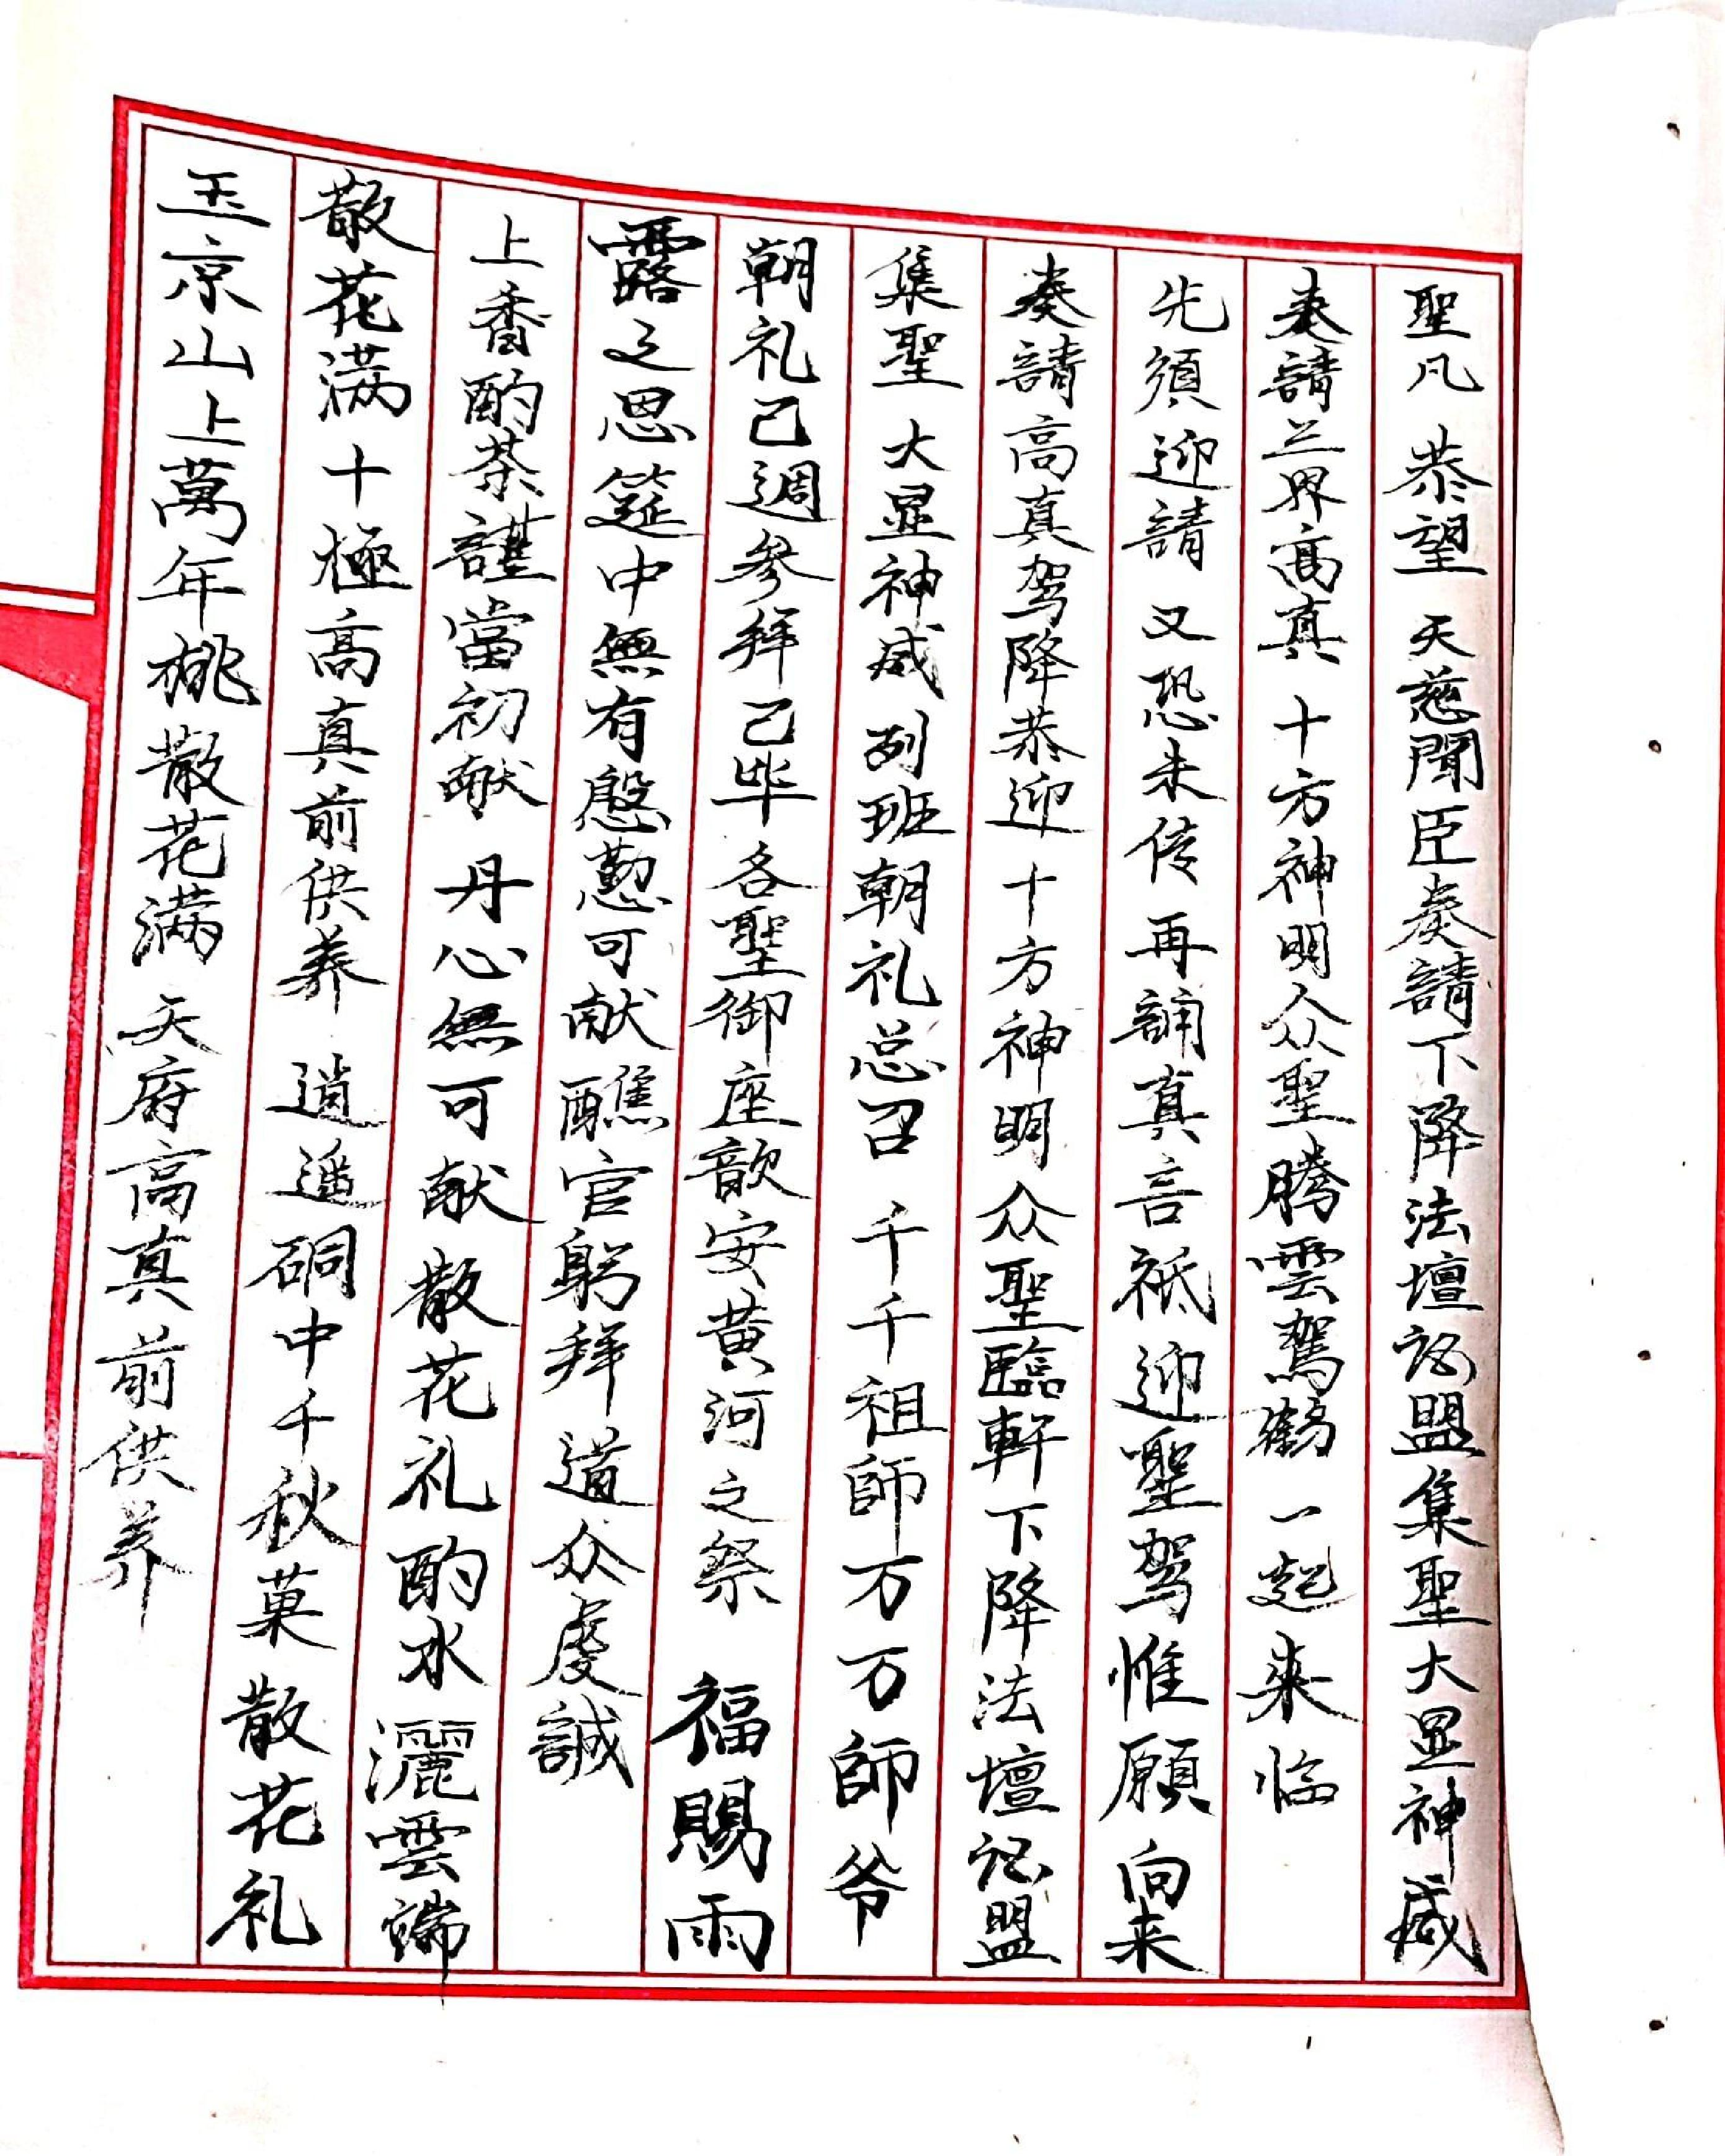 聖凡 恭望 天慈聞臣奏請下降法壇証盟集聖大显神威
奏請三界高真 十方神明众聖騰雲駕鶴 一起来临
先須迎請 又恐未传 再誦真言祗迎聖驾惟願向来
奏請高真驾降恭迎十方神明众聖臨軒下降法壇証盟
集聖 大显神威 列班朝礼总召 千千祖師万万師爷
朝礼已週參拜已毕各聖御座歆安黄河之祭 福賜雨
露之恩筵中無有慇懃可献醮官躬拜道众虔誠
上香酌茶謹當初献 丹心無可献散花礼酌水灑雲端
散花满十極高真前供养 逍遥硐中千秋菓 散花礼
玉京山上萬年桃散花满 天府高真前供养